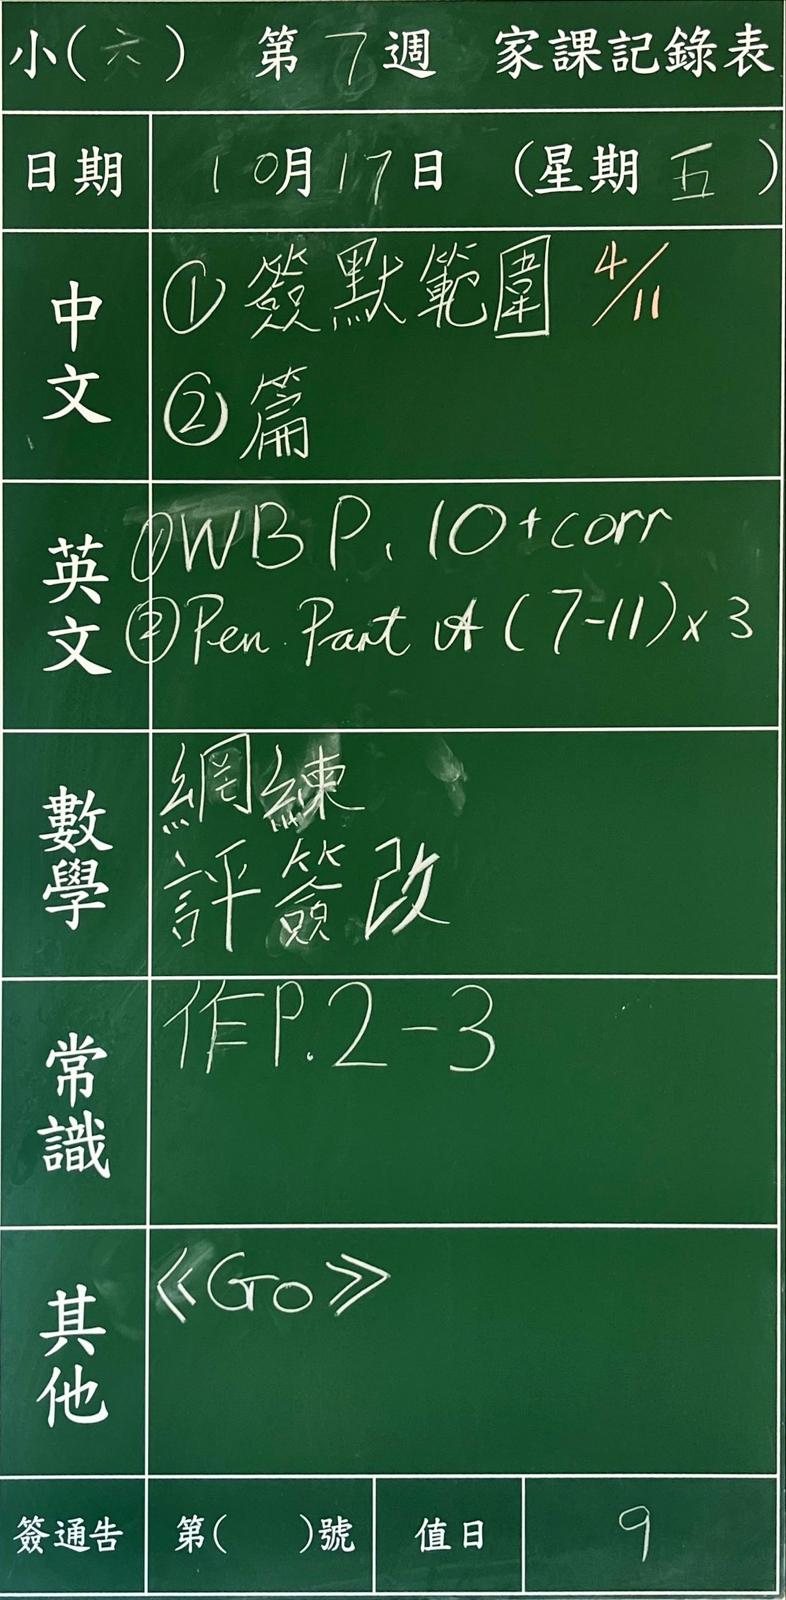 小(六) 第7週 家課記錄表
日期 10月17日 (星期五)
中文 ①簽默範圍 4/11
②篇
英文 ①WB P. 10+corr
②Pen. Part A (7-11)x3
數學 網練
評簽改
常識 作P.2-3
其他 《Go》
簽通告 第( )號 值日 9